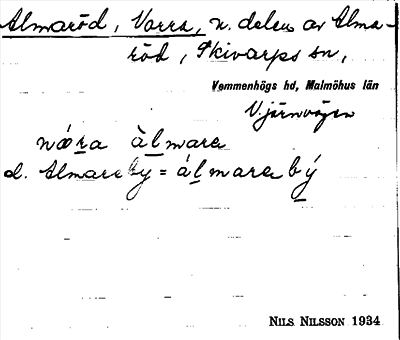 Almaröd, Norra, n. delen av Alma-
röd, Skivarps sn,
Vemmenhögs hd, Malmöhus län
V. järnvägen
nǿra àlmare
d. Almareby = álmarebý
NILS NILSSON 1934